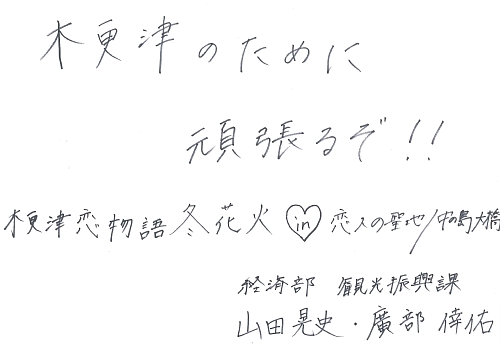 木更津のために
頑張るぞ!!
木更津恋物語冬花火♡in恋人の聖地/中の島大橋
経済部 観光振興課
山田晃史・廣部倖佑